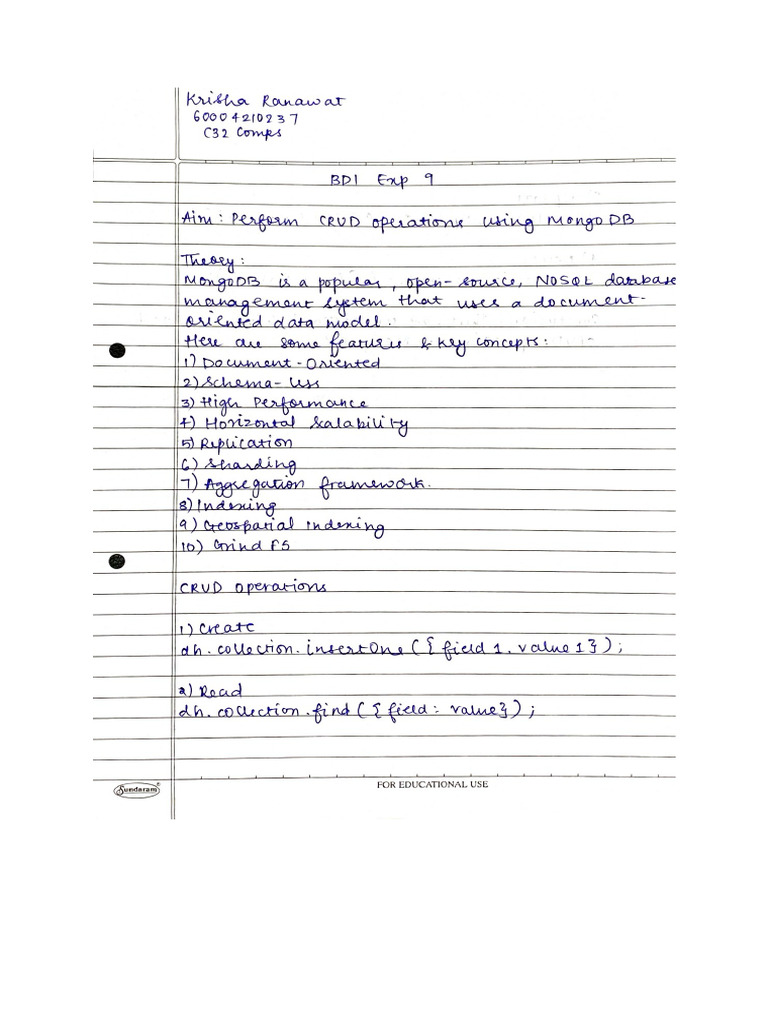 Krisha Ranawat
60004210237
C32 Comps
BDI Exp 9
Aim: Perform CRUD operations using MongoDB
Theory:
MongoDB is a popular, open-source, NOSQL database
management system that uses a document-
oriented data model.
Here are some features & key concepts:
1) Document-Oriented
2) Schema-less
3) High Performance
4) Horizontal Salability
5) Replication
6) Sharding
7) Aggregation framework.
8) Indexing
9) Geospatial Indexing
10) Grind FS
CRUD operations
1) Create
dh.collection.insertOne({field 1. value 1});
2) Read
dh.collection.find({field: value});
Sundaram®
FOR EDUCATIONAL USE